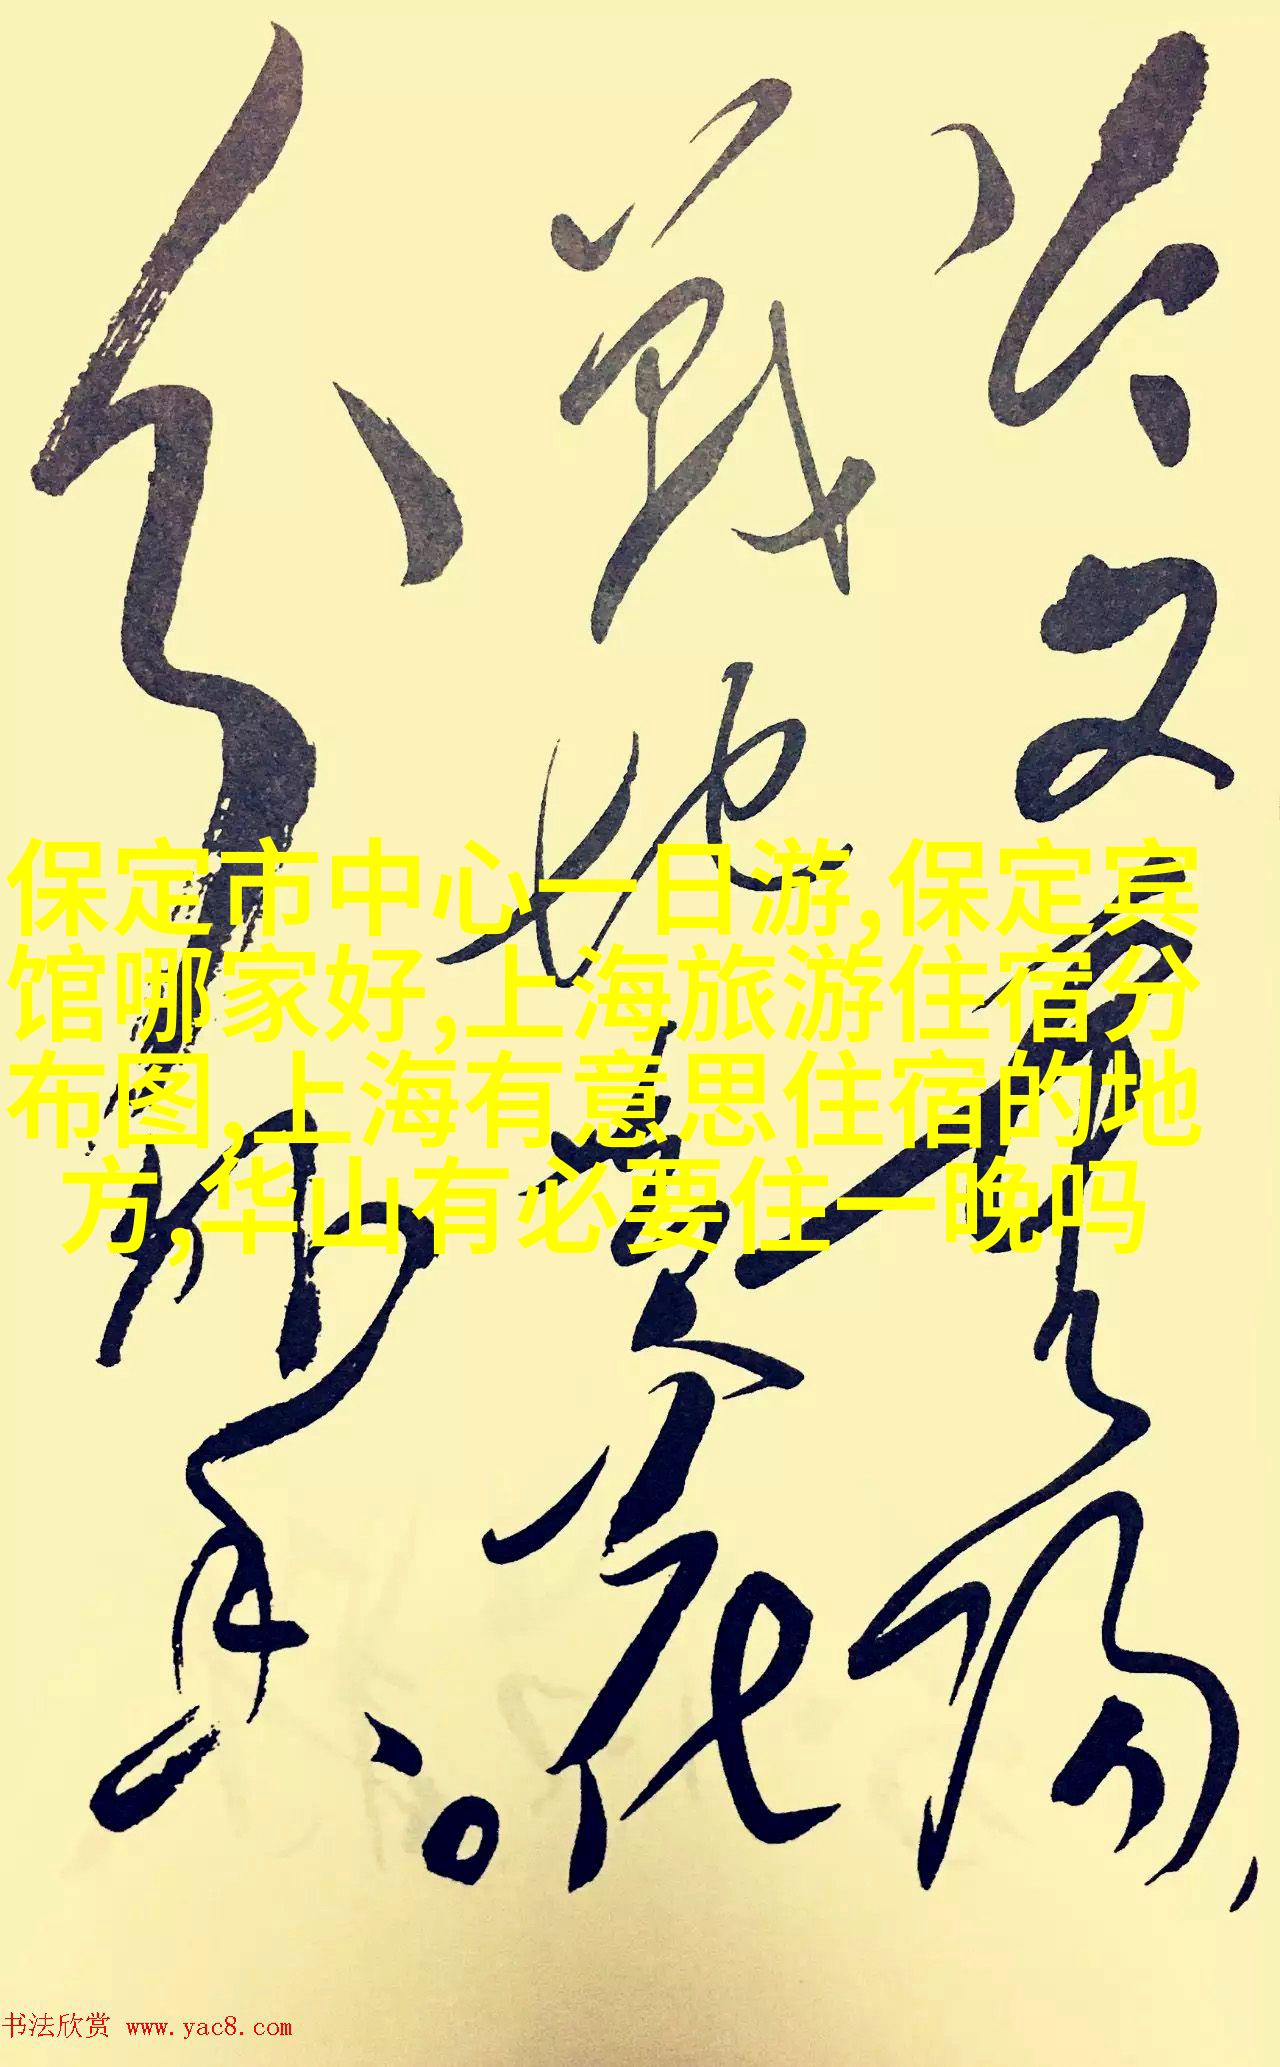 今又重陽，
戰地黃花
分外香。
保定市中心一日游,保定宾
馆哪家好,上海旅游住宿分
布图,上海有意思住宿的地
方,华山有必要住一晚吗
书法欣赏 www.yac8.com